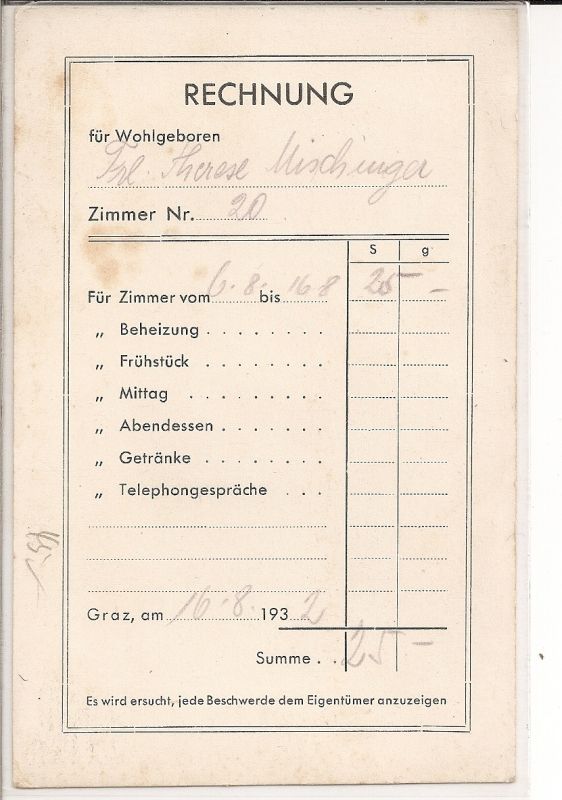 RECHNUNG
für Wohlgeboren
Frl. Therese Mischinger
Zimmer Nr. 20
S g
Für Zimmer vom 6.8. bis 16.8 25 –
„ Beheizung . . . . . . . .
„ Frühstück . . . . . . . .
„ Mittag . . . . . . . . .
„ Abendessen . . . . . . .
„ Getränke . . . . . . . .
„ Telephongespräche . . .
Graz, am 16.8. 1932
Summe . . 25 –
Es wird ersucht, jede Beschwerde dem Eigentümer anzuzeigen